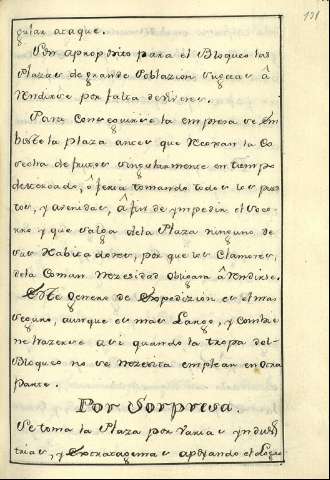 131
gular ataque.
Son aproposito para el Bloqueo las
Plazas de grande Poblazion sugetas â
Rendirse por falta de Viveres.
Para Conseguirse la empresa se Em
biste la plaza antes que Recojan la Co
secha de frutos singularmente en tiempo
desecado, ô feria tomando todos los pues
tos, y avenidas, â fin de ympedir el soco
rro y que salga dela Plaza ninguno de
sus Habitadores, por que los Clamores,
dela Comun Nezesidad obligan â Rendirse.
Este Genero de Expedizion es el mas
seguro, aunque es mas Largo, y Combie
ne hazerse asi quando la tropa del
Bloqueo no se Nezesita emplear en otra
parte.
Por Sorpresa.
Se toma la Plaza por Varias yndus
trias, y Extratagemas apoyando el